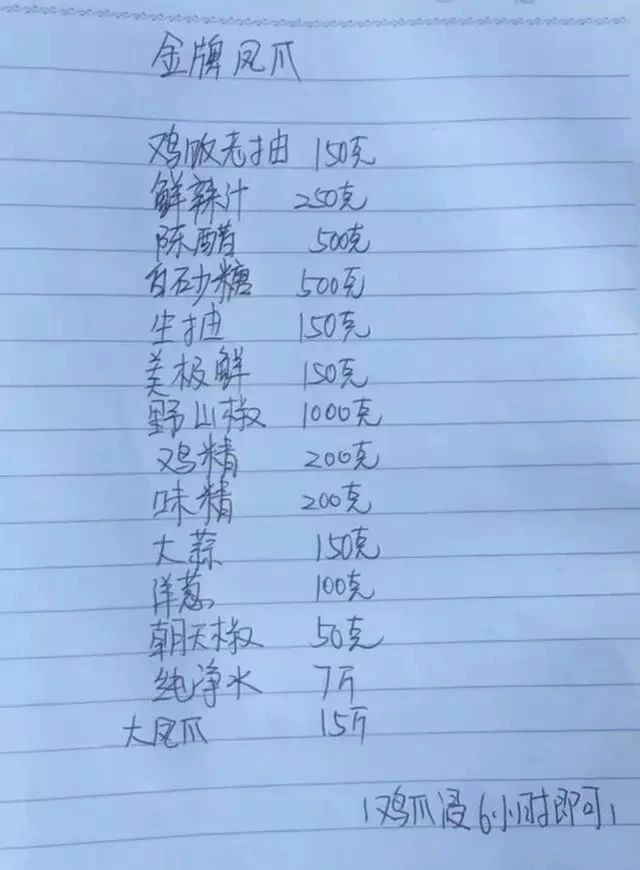 金牌凤爪
鸡饭老抽 150克
鲜辣汁 250克
陈醋 500克
白砂糖 500克
生抽 150克
美极鲜 150克
野山椒 1000克
鸡精 200克
味精 200克
大蒜 150克
洋葱 100克
朝天椒 50克
纯净水 7斤
大凤爪 15斤
(鸡爪浸6小时即可)